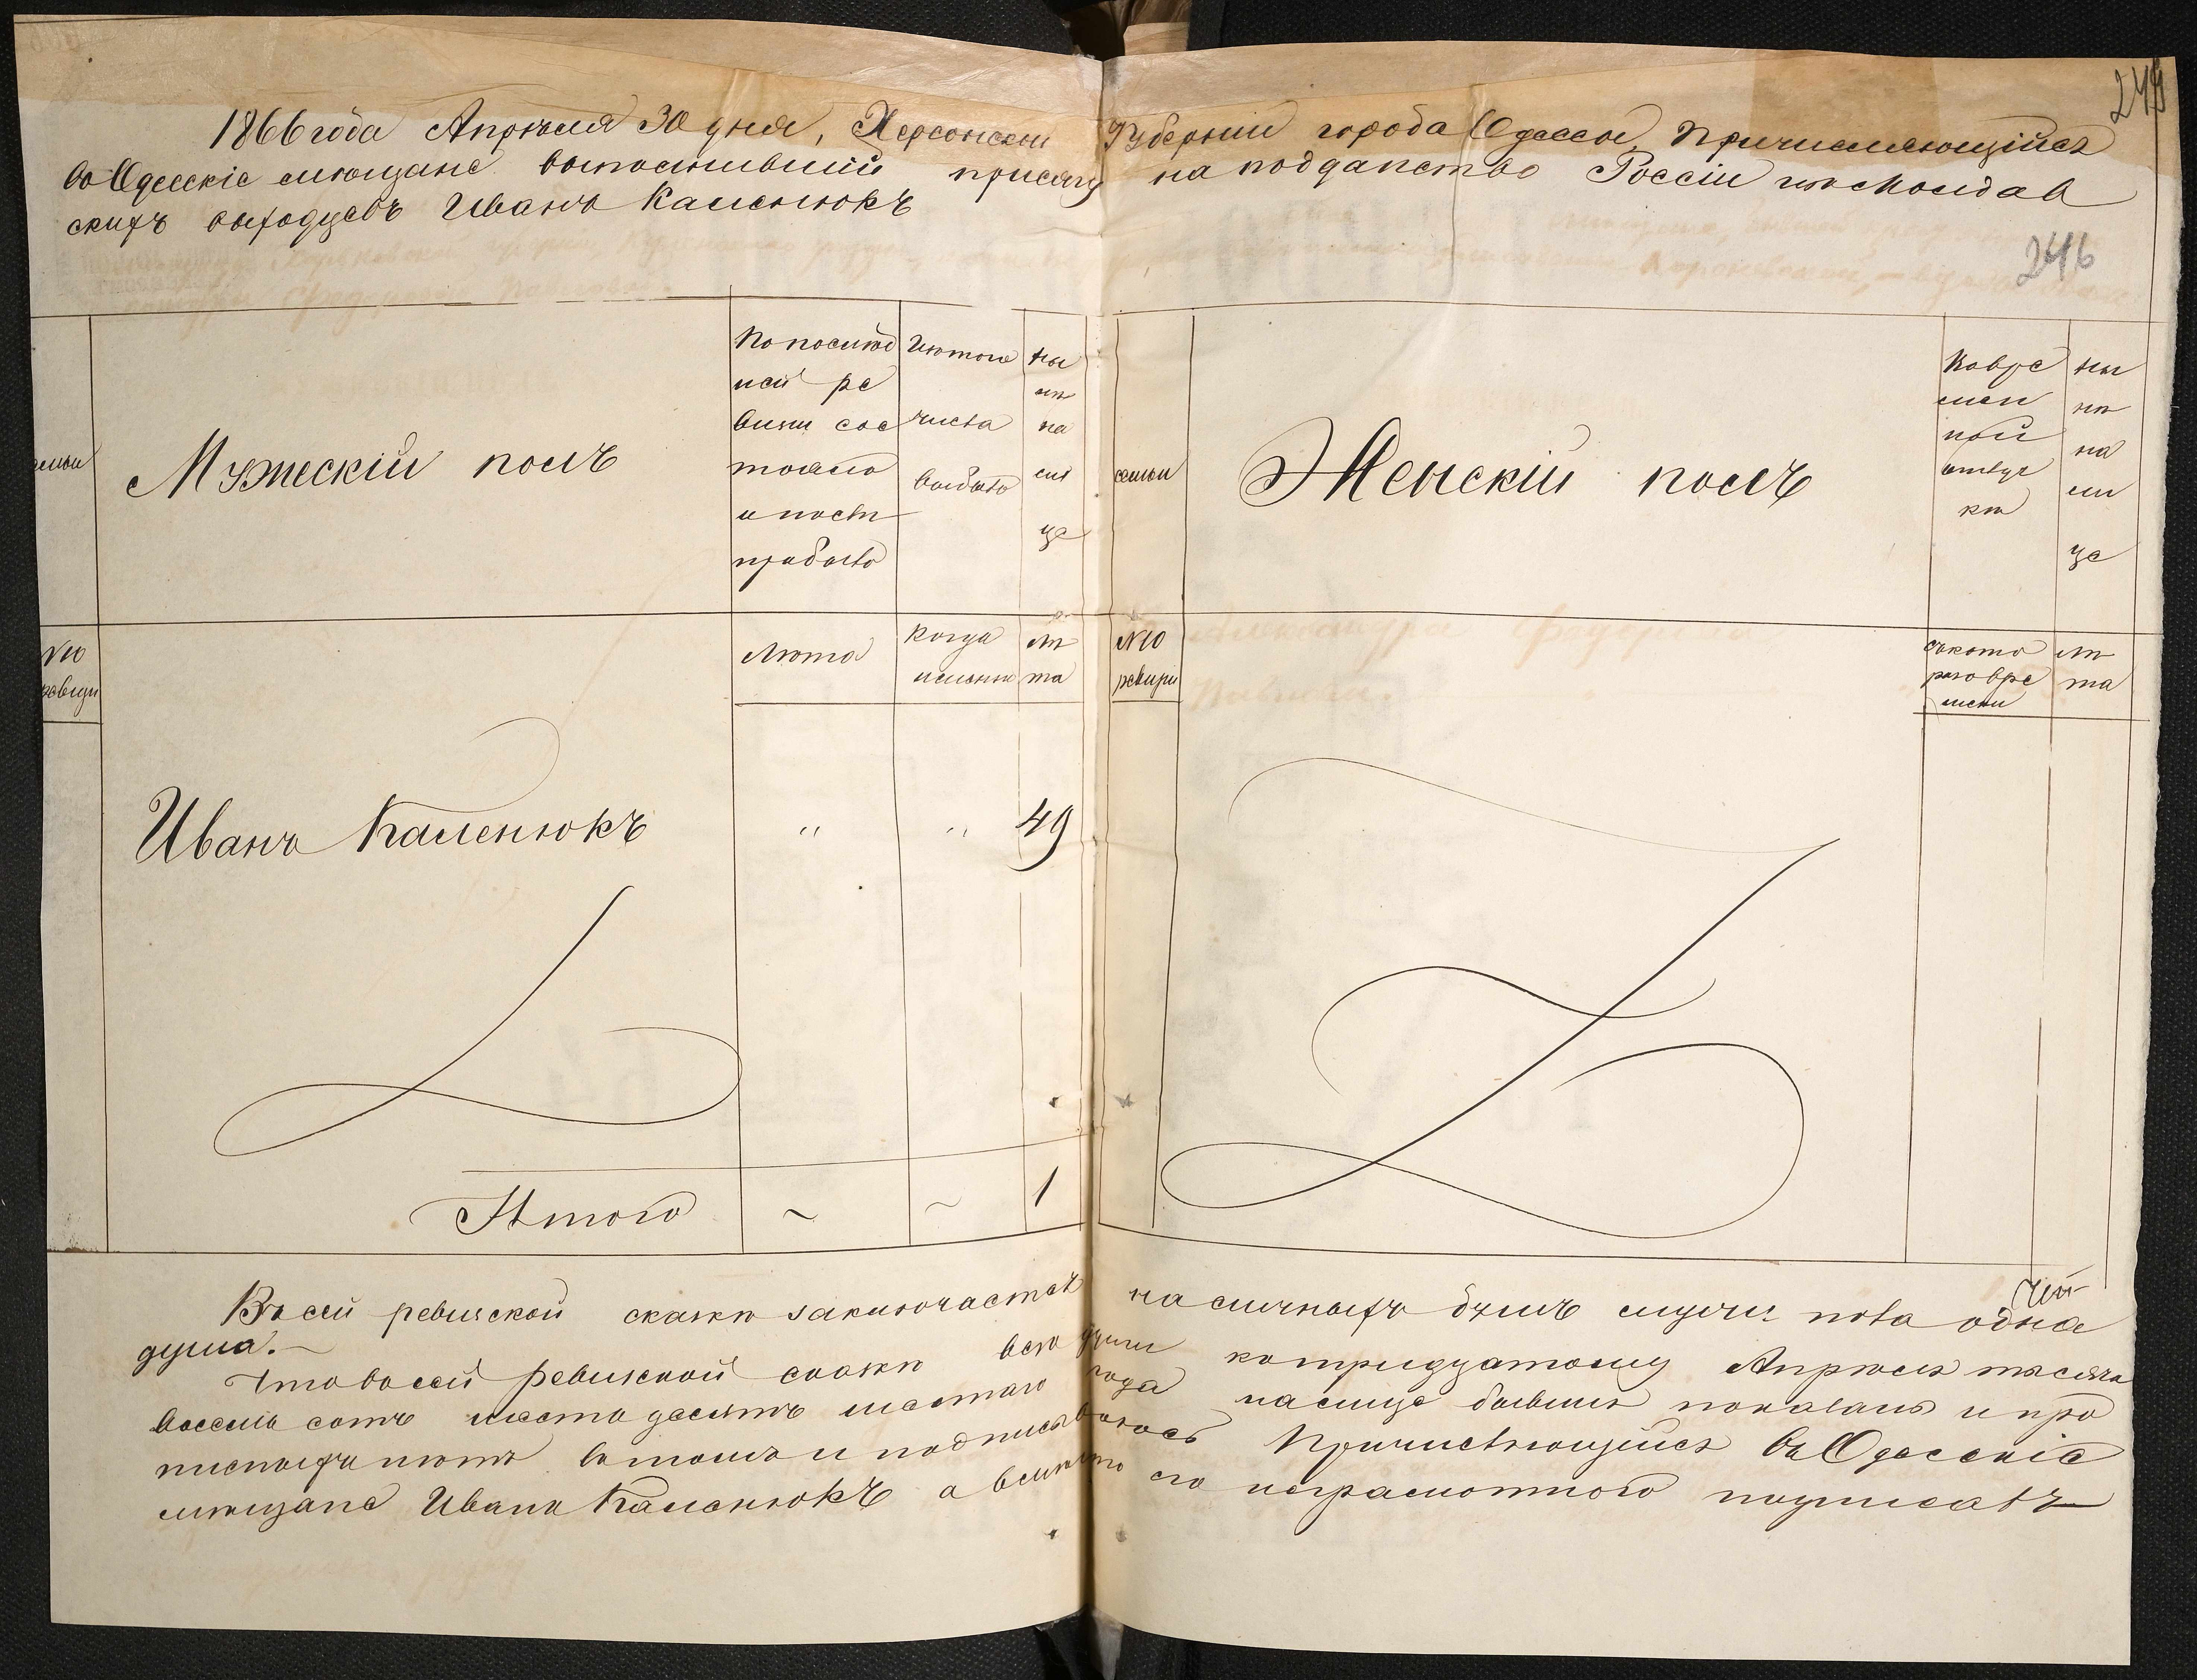 1866 года Апрѣля 30 дня, Херсонской Губерніи города Одессы, Причисляющійся
во Одесскіе мѣщане выполнившій присягу на подданство Россіи изъ Молдав
скихъ выходцевъ Иванъ Каленюкъ
246
семьи
Мужескій полъ
По послѣд
ней ре
визіи сос
тояло
и послѣ
прибыло
Изтого
числа
выбыло
Ны
нѣ
на
ли
це
семьи
Женскій полъ
Вовре
мен
ной
отлуч
кѣ
Ны
нѣ
на
ли
це
№ю
ревизіи
Лѣта
Когда
именно
лѣ
та
№ю
ревизіи
съкото
раго вре
мени
лѣ
та
Иванъ Каленюкъ " " 49
Итого ~ ~ 1
Въ сей ревизской сказкѣ заключается наличныхъ душъ мужеска пола одна
душа.
Что въ сей ревизской сказкѣ всѣ души ктридцатому Апрѣля тысяча
восемь сотъ шестьдесятъ шестаго года налице бывшія показаны и про
писныхъ нѣтъ въ томъ и подписываюсь Причисляющійся въ Одесскіе
мѣщане Иванъ Каленюкъ а вмѣсто его неграмотного подписалъ